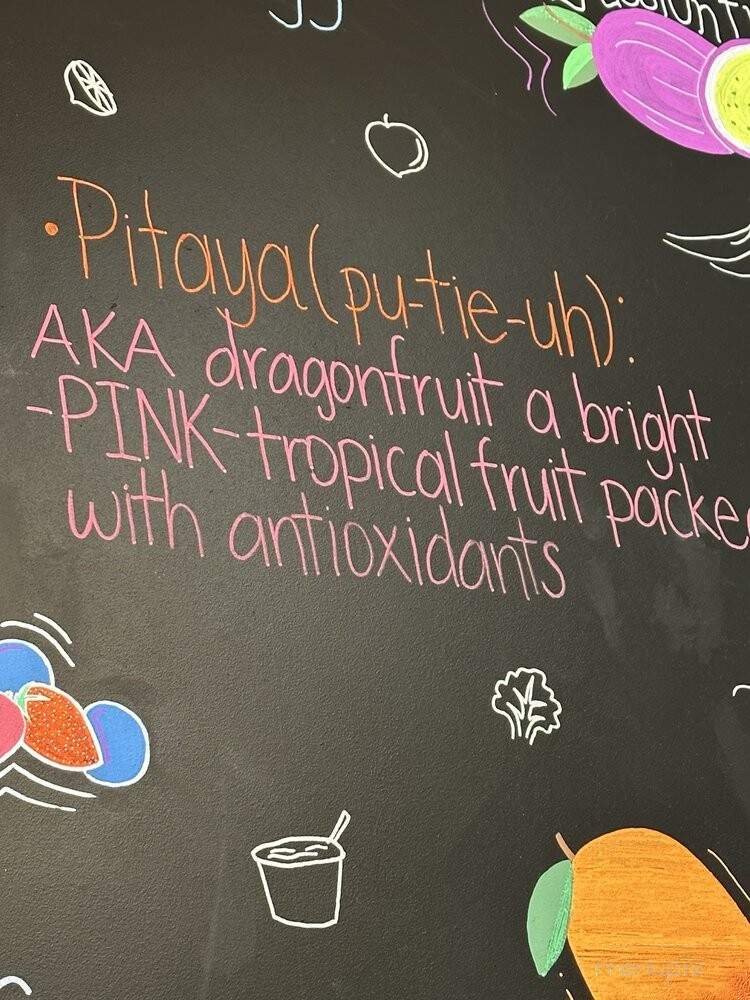 •Pitaya(pu-tie-uh):
AKA dragonfruit a bright
-PINK-tropical fruit packe
with antioxidants